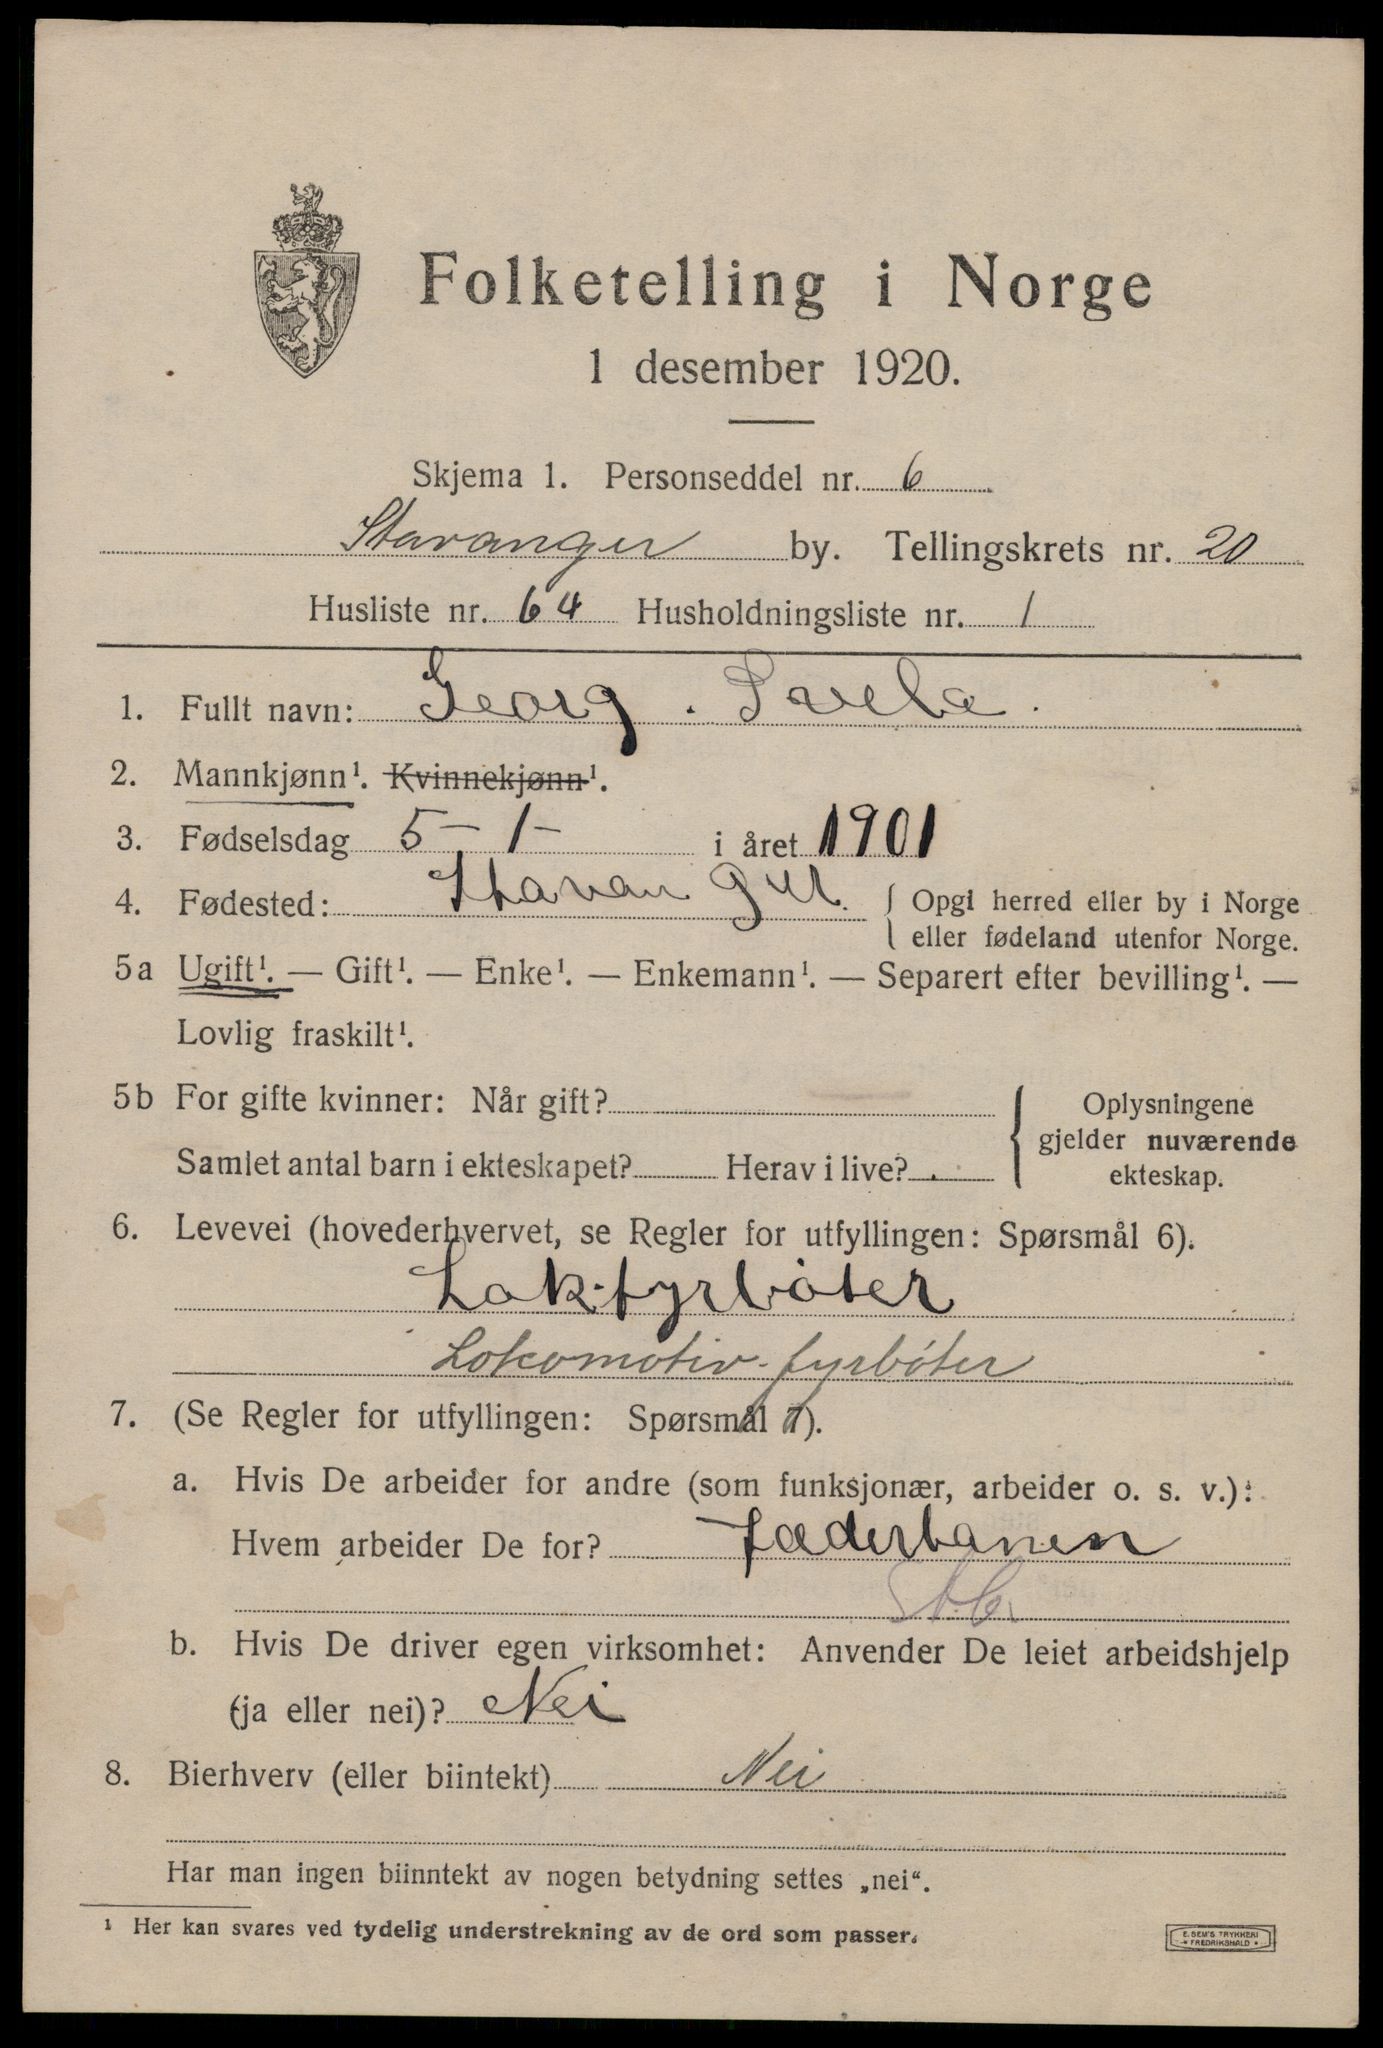 Folketelling i Norge
1 desember 1920.
Skjema 1. Personseddel nr. 6
Stavanger by. Tellingskrets nr. 20
Husliste nr. 64 Husholdningsliste nr. 1
1. Fullt navn: Georg . Svela .
2. Mannkjønn¹. Kvinnekjønn¹.
3. Fødselsdag 5 – 1 – i året 1901
4. Fødested: Stavanger. { Opgi herred eller by i Norge
eller fødeland utenfor Norge.
5a Ugift¹. — Gift¹. — Enke¹. — Enkemann¹. — Separert efter bevilling¹. —
Lovlig fraskilt¹.
5b For gifte kvinner: Når gift?
Samlet antal barn i ekteskapet? Herav i live? .
{ Oplysningene
gjelder nuværende
ekteskap.
6. Levevei (hovederhvervet, se Regler for utfyllingen: Spørsmål 6).
Lok.fyrbøter
Lokomotiv-fyrbøter
7. (Se Regler for utfyllingen: Spørsmål 7).
a. Hvis De arbeider for andre (som funksjonær, arbeider o. s. v.):
Hvem arbeider De for? Jæderbanen
b. Hvis De driver egen virksomhet: Anvender De leiet arbeidshjelp
(ja eller nei)? Nei
8. Bierhverv (eller biintekt) Nei
Har man ingen biinntekt av nogen betydning settes „nei“.
¹ Her kan svares ved tydelig understrekning av de ord som passer.
E. SEM'S TRYKKERI
* FREDRIKSHALD *